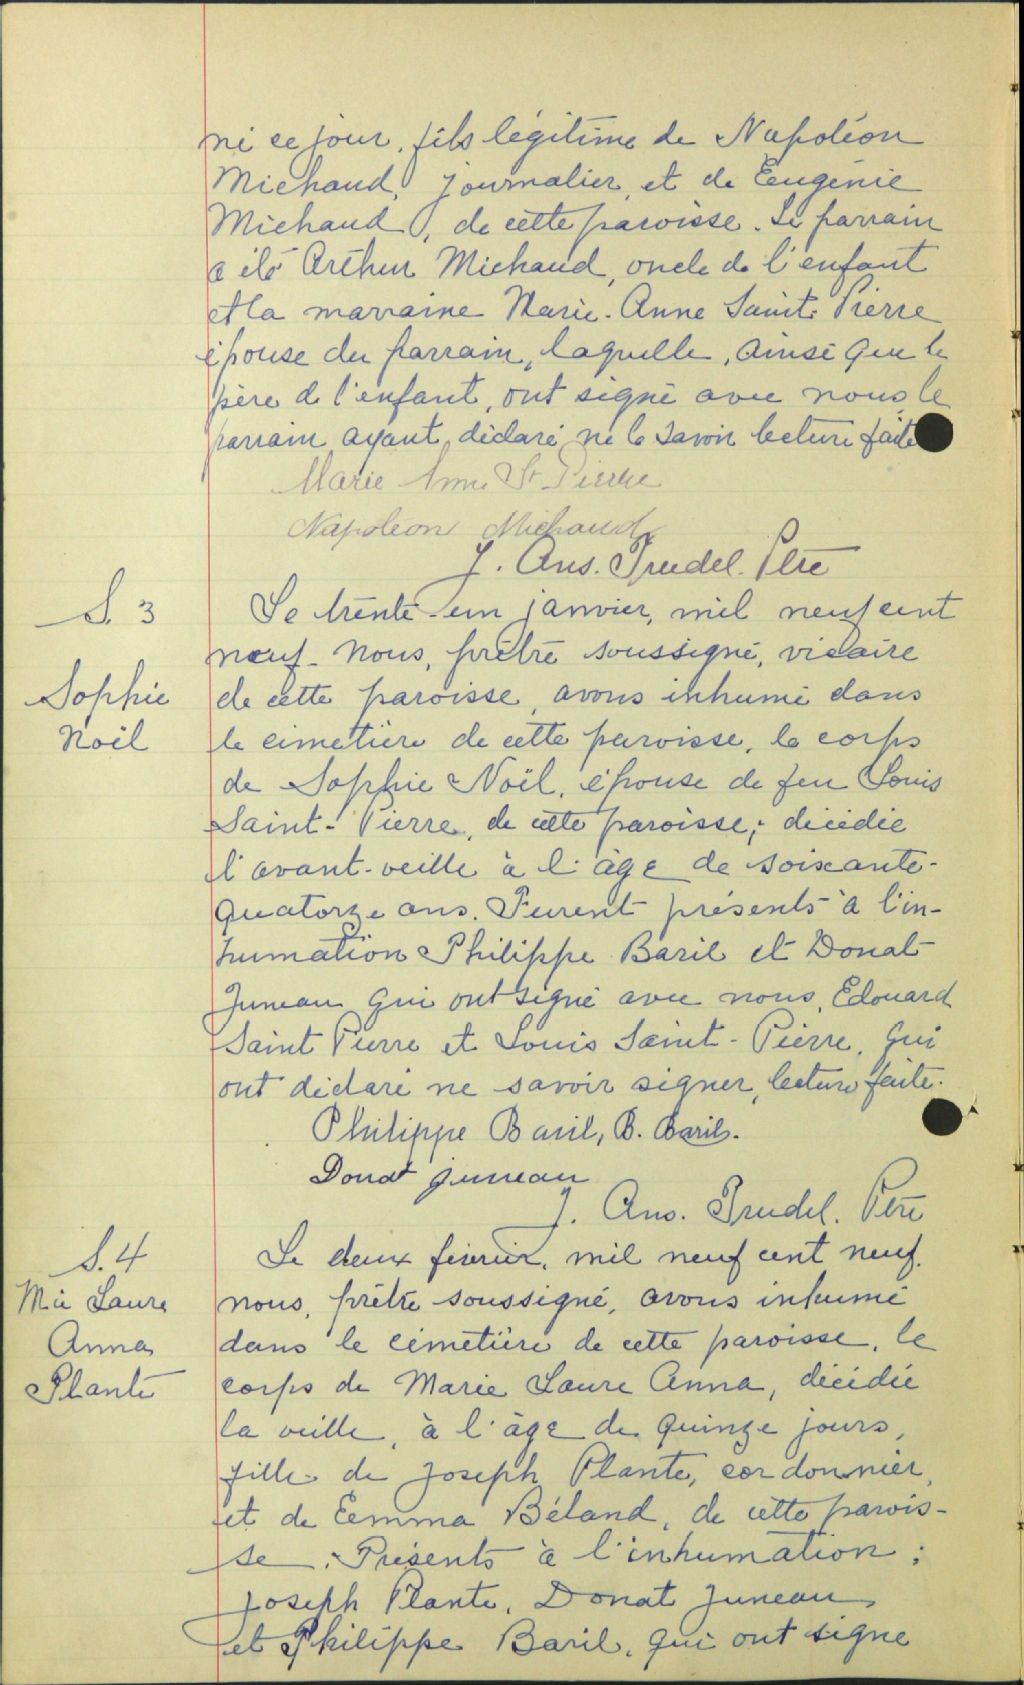 né ce jour, fils légitime de Napoléon
Michaud, journalier, et de Eugénie
Michaud, de cette paroisse. Le parrain
a été Arthur Michaud, oncle de l'enfant
et la marraine Marie-Anne Saint-Pierre
épouse du parrain, laquelle, ainsi que le
père de l'enfant, ont signé avec nous, le
parrain ayant déclaré ne le savoir lecture faite
Marie Anne St-Pierre
Napoleon Michaud
J. Ans. Trudel. Ptre
S. 3
Sophie
Noël
Le trente-un janvier, mil neuf cent
neuf. Nous, prêtre soussigné, vicaire
de cette paroisse, avons inhumé dans
le cimetière de cette paroisse, le corps
de Sophie Noël, épouse de feu Louis
Saint-Pierre, de cette paroisse, décédée
l'avant-veille à l'âge de soixante-
quatorze ans. Furent présents à l'in-
humation Philippe Baril et Donat
Juneau qui ont signé avec nous, Edouard
Saint Pierre et Louis Saint-Pierre, qui
ont déclaré ne savoir signer, lecture faite.
Philippe Baril, B. Baril.
Donat Juneau
J. Ans. Trudel. Ptre
S. 4
Mie Laure
Anna
Plante
Le deux février, mil neuf cent neuf,
nous, prêtre soussigné, avons inhumé
dans le cimetière de cette paroisse, le
corps de Marie Laure Anna, décédée
la veille, à l'âge de quinze jours,
fille de Joseph Plante, cordonnier,
et de Emma Béland, de cette parois-
se. Présents à l'inhumation:
Joseph Plante, Donat Juneau
et Philippe Baril, qui ont signé